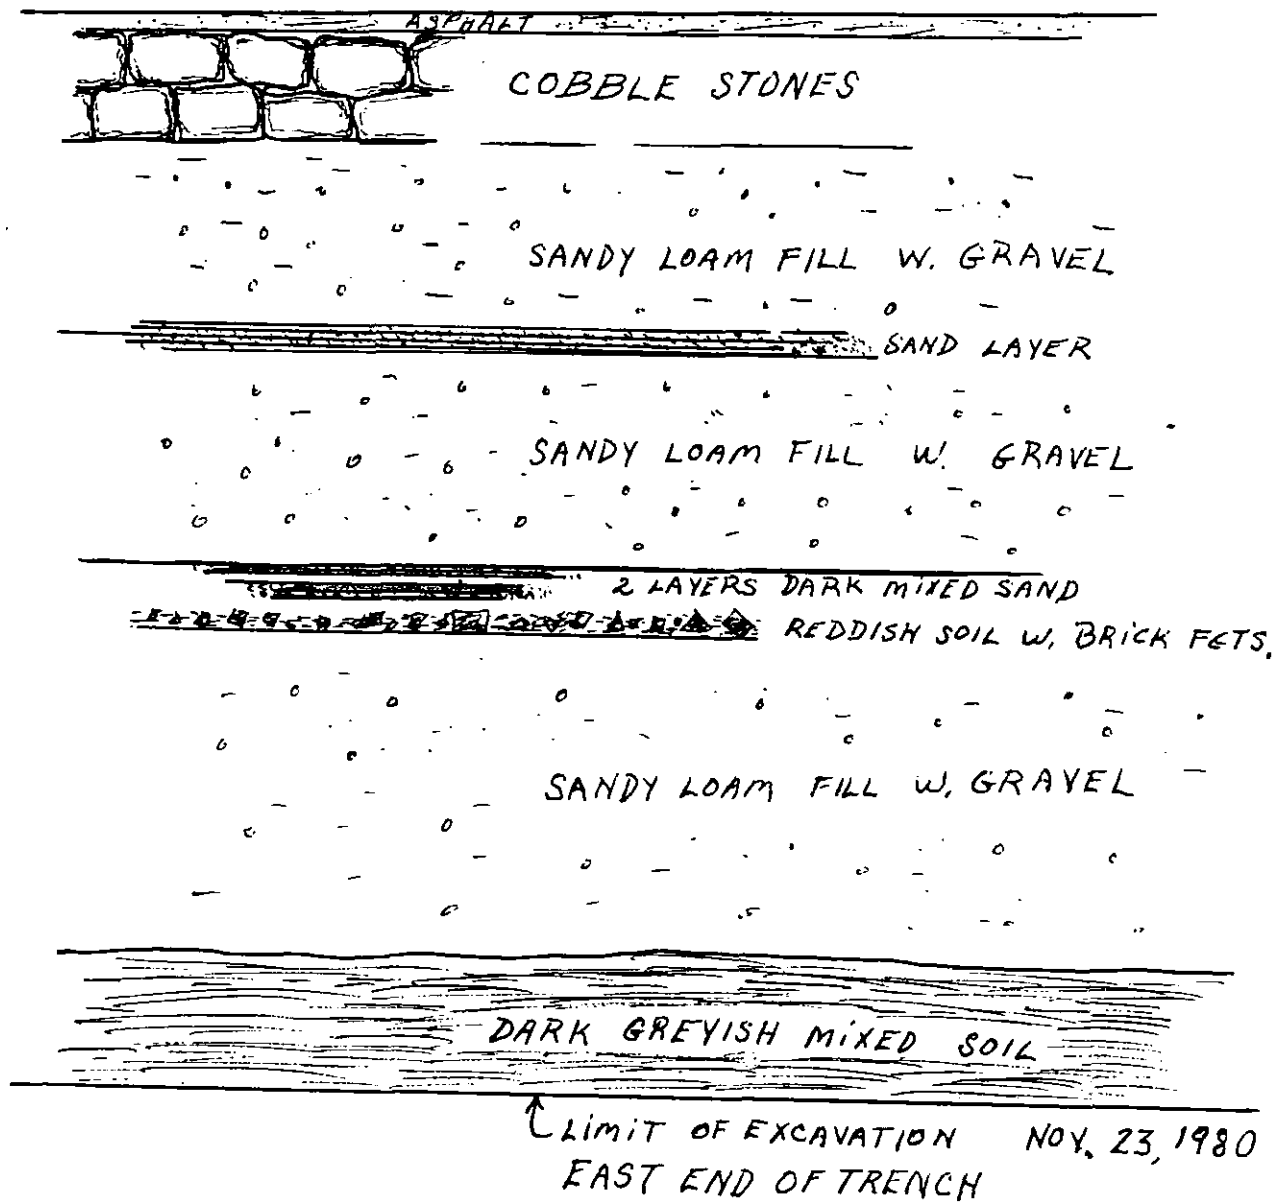 ASPHALT
COBBLE STONES
SANDY LOAM FILL W. GRAVEL
SAND LAYER
SANDY LOAM FILL W. GRAVEL
2 LAYERS DARK MiXED SAND
REDDISH SOIL W. BRiCK FGTS.
SANDY LOAM FILL W. GRAVEL
DARK GREYISH MiXED SOIL
LiMiT OF EXCAVATION NOV. 23, 1980
EAST END OF TRENCH